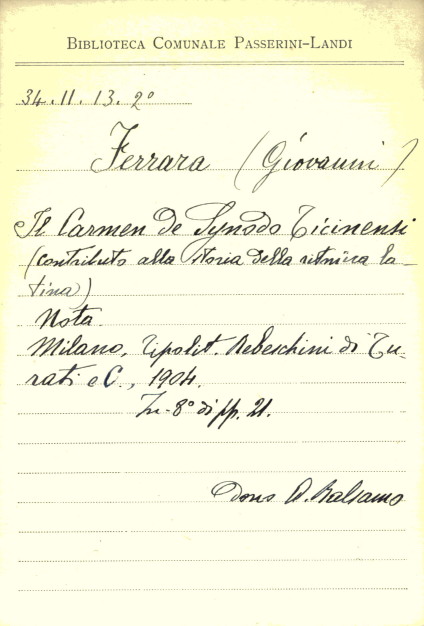 BIBLIOTECA COMUNALE PASSERINI-LANDI
34.11.13.2°
Ferrara (Giovanni)
Il Carmen de Synodo Ticinensi
(contributo alla storia della ritmica la-
tina)
Nota.
Milano, Tipolit. Rebeschini di Tu-
rati e C., 1904.
In-8° di pp. 21.
Dono A. Balsamo